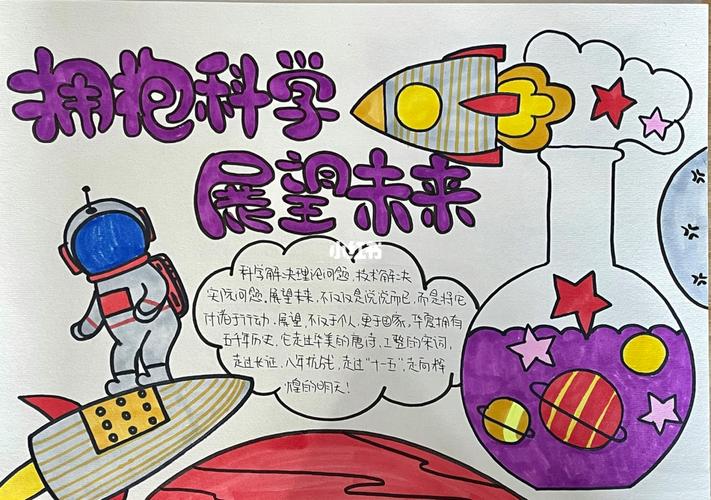 拥抱科学
展望未来
小红书
科学解决理论问题,技术解决
实际问题,展望未来,不仅仅是说说而已,而是将它
付诸于行动。展望,不仅于个人,更于国家,华夏拥有
五千年历史,它走过华美的唐诗、工整的宋词,
走过长征、八年抗战,走过“十一五”,走向辉
煌的明天!